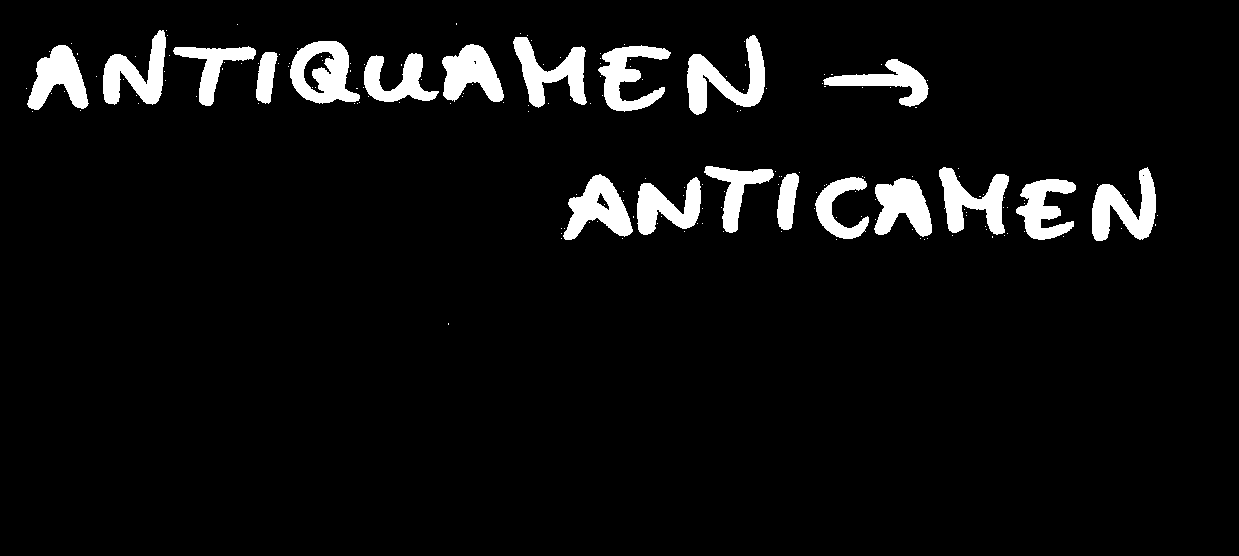 ANTIQUAMEN →
ANTICAMEN